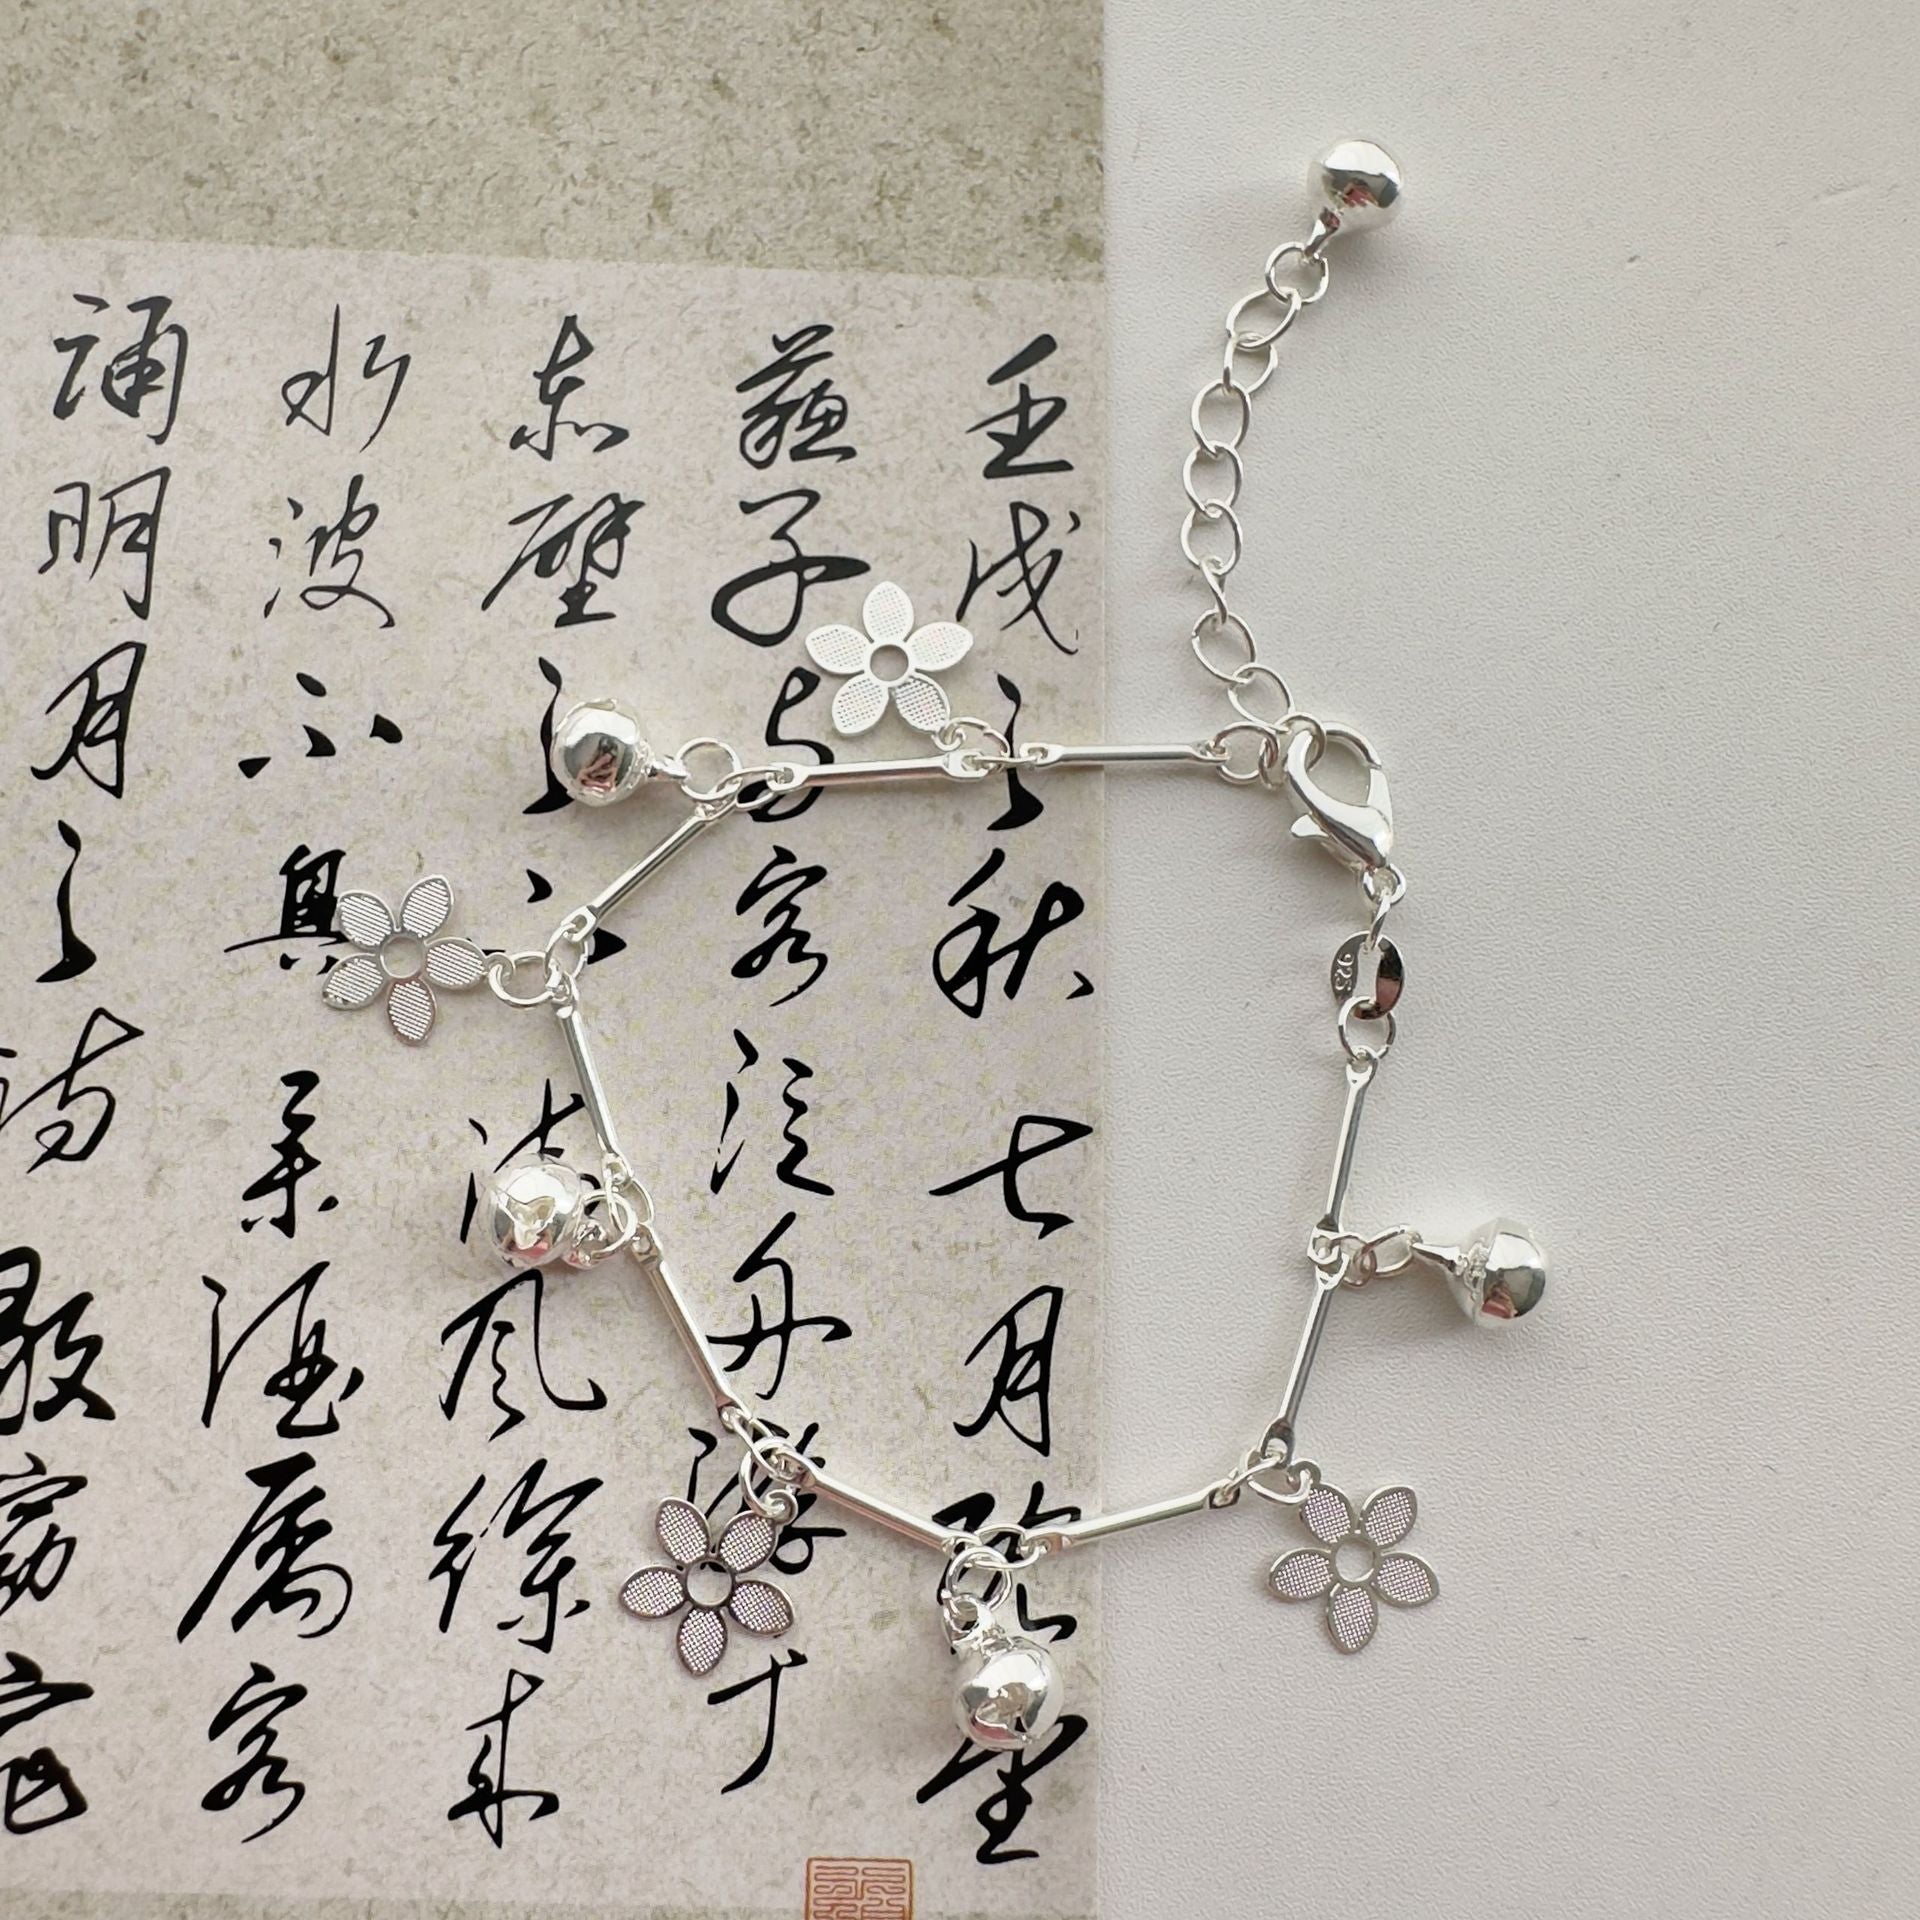 壬戌之秋七月既望
蘇子与客泛舟游于
赤壁之下清风徐来
水波不興举酒属客
誦明月之诗歌窈窕
925